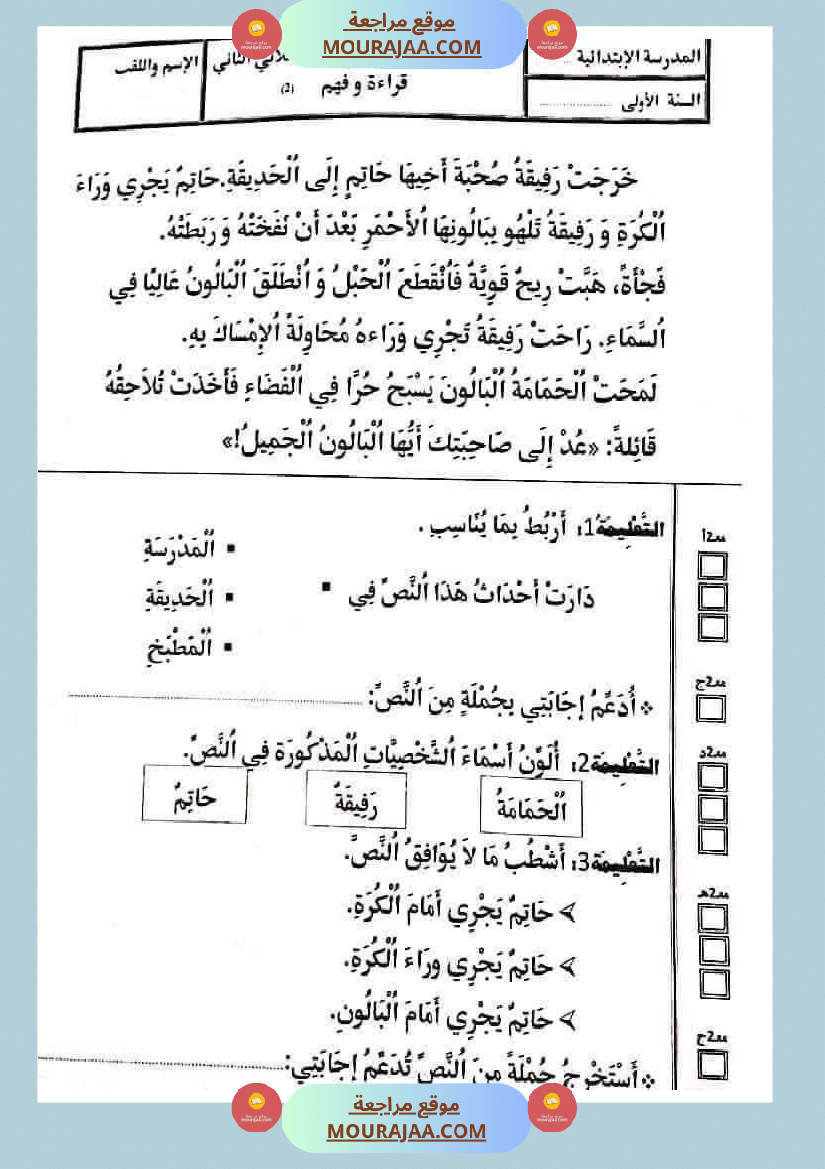 موقع مراجعة
MOURAJAA.COM
المدرسة الإبتدائية ..
الثاني
الإسم واللقب
قراءة و فهم (2)
السنة الأولى ....................
خَرَجَتْ رَفِيقَةُ صُحْبَةَ أَخِيهَا حَاتِمٍ إِلَى اُلْحَدِيقَةِ.حَاتِمٌ يَجْرِي وَرَاءَ
اُلْكُرَةِ وَ رَفِيقَةُ تَلْهُو بِبَالُونِهَا اُلأَحْمَرِ بَعْدَ أَنْ نَفَخَتْهُ وَ رَبَطَتْهُ.
فَجْأَةً، هَبَّتْ رِيحٌ قَوِيَّةٌ فَاُنْقَطَعَ اُلْحَبْلُ وَ اُنْطَلَقَ اُلْبَالُونُ عَالِيًا فِي
اُلسَّمَاءِ. رَاحَتْ رَفِيقَةُ تَجْرِي وَرَاءهُ مُحَاوِلَةً اُلإِمْسَاكَ بِهِ.
لَمَحَتْ اُلْحَمَامَةُ اُلْبَالُونَ يَسْبَحُ حُرًّا فِي اُلْفَضَاءِ فَأَخَذَتْ تُلاَحِقُهُ
قَائِلةً: «عُدْ إِلَى صَاحِبَتِكَ أَيُّهَا اُلْبَالُونُ اُلْجَمِيلُ!»
التَّعْلِيمَة1: أَرْبُطُ بِمَا يُنَاسِبِ.
مع2أ
▪ اُلْمَدْرَسَةِ
دَارَتْ أَحْدَاثُ هَذَا اُلنَّصِّ فِي ▪
▪ اُلْحَدِيقَةِ
▪ اُلْمَطْبَخِ
مع2ج
❖ أُدَعِّمُ إِجَابَتِي بِجُمْلَةٍ مِنَ اُلنَّصِّ: ....................
مع2د
التَّعْلِيمَة2: أُلَوِّنُ أَسْمَاءَ اُلشَّخْصِيَّاتِ اُلْمَذْكُورَة فِي اُلنَّصِّ.
اُلْحَمَامَةُ
رَفِيقَةٌ
حَاتِمٌ
التَّعْلِيمَة3: أَشْطُبُ مَا لاَ يُوَافِقُ اُلنَّصَّ.
مع2هـ
➢ حَاتِمٌ يَجْرِي أَمَامَ اُلْكُرَةِ.
➢ حَاتِمٌ يَجْرِي ورَاءَ اُلْكُرَةِ.
➢ حَاتِمٌ يَجْرِي أَمَامَ اُلْبَالُونِ.
مع2ح
❖ أَسْتَخْرِجُ جُمْلَةً مِنَ اُلنَّصِّ تُدَعِّمُ إِجَابَتِي: ....................
موقع مراجعة
MOURAJAA.COM